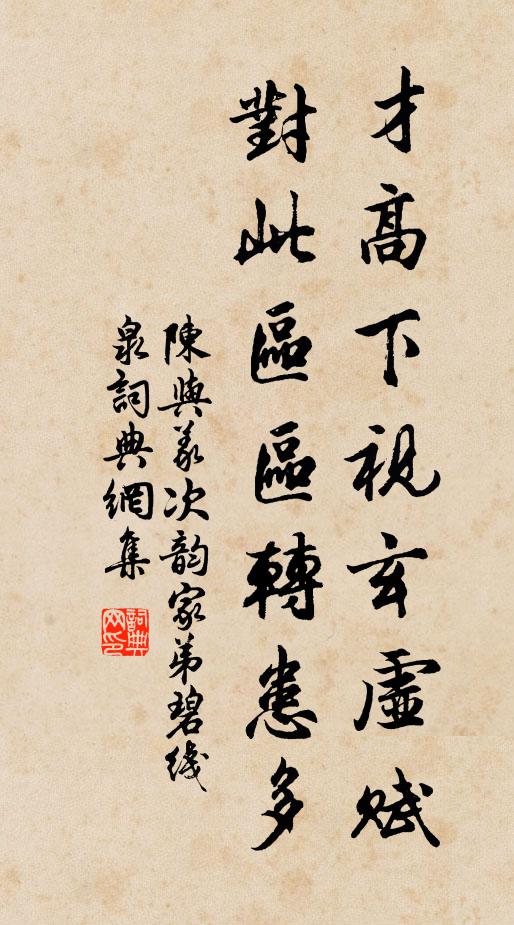 才高下視玄虛賦
對此區區轉患多
陳與義次韵家弟碧线
泉詞典網集
詞典网印